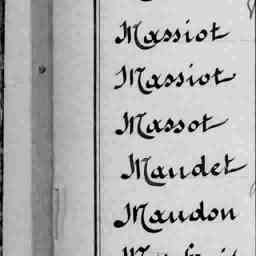 Massiot
Massiot
Massot
Maudet
Maudon